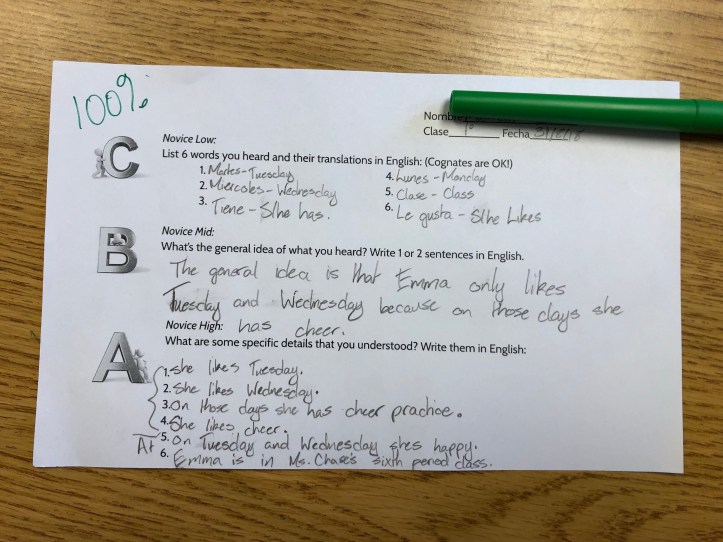 100%
Nombr
Clase 1° Fecha
C
Novice Low:
List 6 words you heard and their translations in English: (Cognates are OK!)
1. Martes - Tuesday
2. Miercoles - Wednesday
3. Tiene - S/he has.
4. Lunes - Monday
5. Clase - Class
6. Le gusta - S/he Likes
B
Novice Mid:
What's the general idea of what you heard? Write 1 or 2 sentences in English.
The general idea is that Emma only likes
Tuesday and Wednesday because on those days she
has cheer.
Novice High:
A
What are some specific details that you understood? Write them in English:
1. she likes Tuesday.
2. She likes Wednesday.
3. On those days she has cheer practice.
4. She likes cheer.
A+
5. On Tuesday and Wednesday shes happy.
6. Emma is in Ms. Chase's sixth period class.